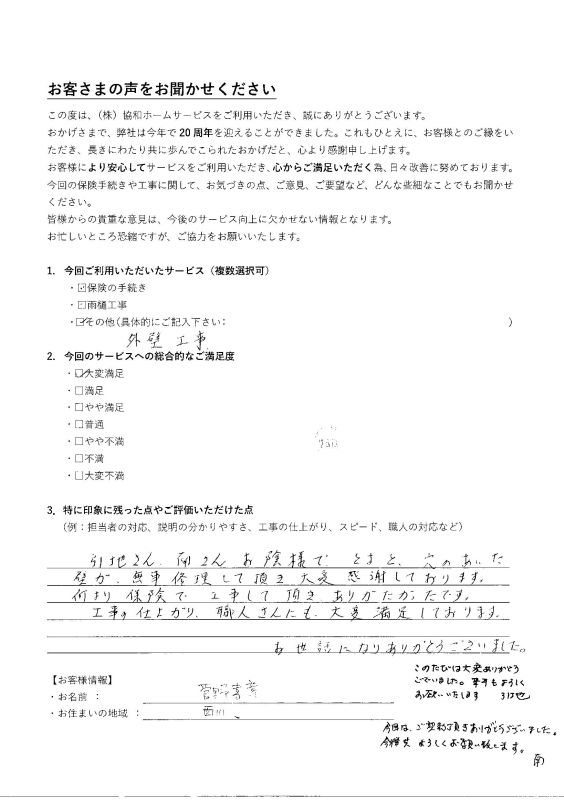 お客さまの声をお聞かせください
この度は、（株）協和ホームサービスをご利用いただき、誠にありがとうございます。
おかげさまで、弊社は今年で 20 周年を迎えることができました。これもひとえに、お客様とのご縁をい
ただき、長きにわたり共に歩んでこられたおかげだと、心より感謝申し上げます。
お客様により安心してサービスをご利用いただき、心からご満足いただく為、日々改善に努めております。
今回の保険手続きや工事に関して、お気づきの点、ご意見、ご要望など、どんな些細なことでもお聞かせ
ください。
皆様からの貴重な意見は、今後のサービス向上に欠かせない情報となります。
お忙しいところ恐縮ですが、ご協力をお願いいたします。
1. 今回ご利用いただいたサービス（複数選択可）
・☑保険の手続き
・☑雨樋工事
・☑その他（具体的にご記入下さい： ）
外壁 工事
2. 今回のサービスへの総合的なご満足度
・☑大変満足
・□満足
・□やや満足
・□普通
・□やや不満
・□不満
・□大変不満
3. 特に印象に残った点やご評価いただけた点
（例：担当者の対応、説明の分かりやすさ、工事の仕上がり、スピード、職人の対応など）
引地さん、南さん お陰様で とまと、穴のあいた
壁が、無事修理して頂き 大変 感謝しております。
何より 保険で 工事して 頂き ありがたかたです。
工事の仕上がり、職人さんにも、大変 満足しております。
お世話になりありがとうございました。
【お客様情報】
・お名前 ：
・お住まいの地域 ： 西川
このたびは大変ありがとう
ございました。今後もよろしく
お願いいたします 引地
今回は、ご契約頂きありがとうございました。
今後共 よろしくお願い致します。
南